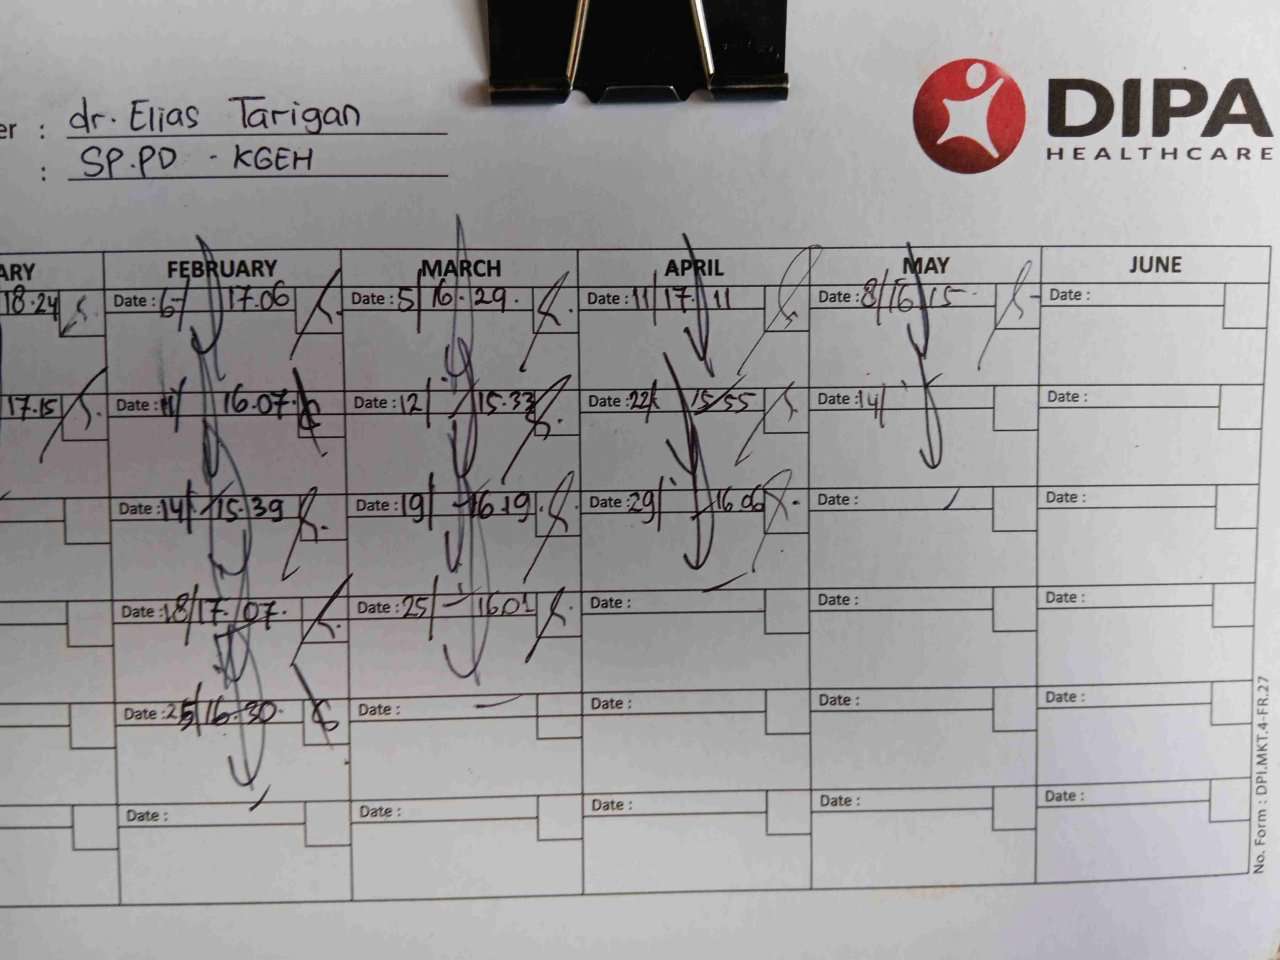 er : dr. Elias Tarigan
: SP.PD - KGEH
DIPA
HEALTHCARE
ARY FEBRUARY MARCH APRIL MAY JUNE
18.24 Date : 6/ 17.06 Date : 5/ 16.29. Date : 11/ 17.11 Date : 8/ 16.15 Date :
17.15 Date : 11/ 16.07. Date : 12/ 15.33 Date : 22/ 15.55 Date : 14/ Date :
Date : 14/ 15.39 Date : 19/ 16.19. Date : 29/ 16.06 Date : Date :
Date : 18/ 17.07. Date : 25/ 16.01 Date : Date : Date :
Date : 25/ 16.30. Date : Date : Date : Date :
Date : Date : Date : Date : Date :
No. Form : DPI.MKT.4-FR.27